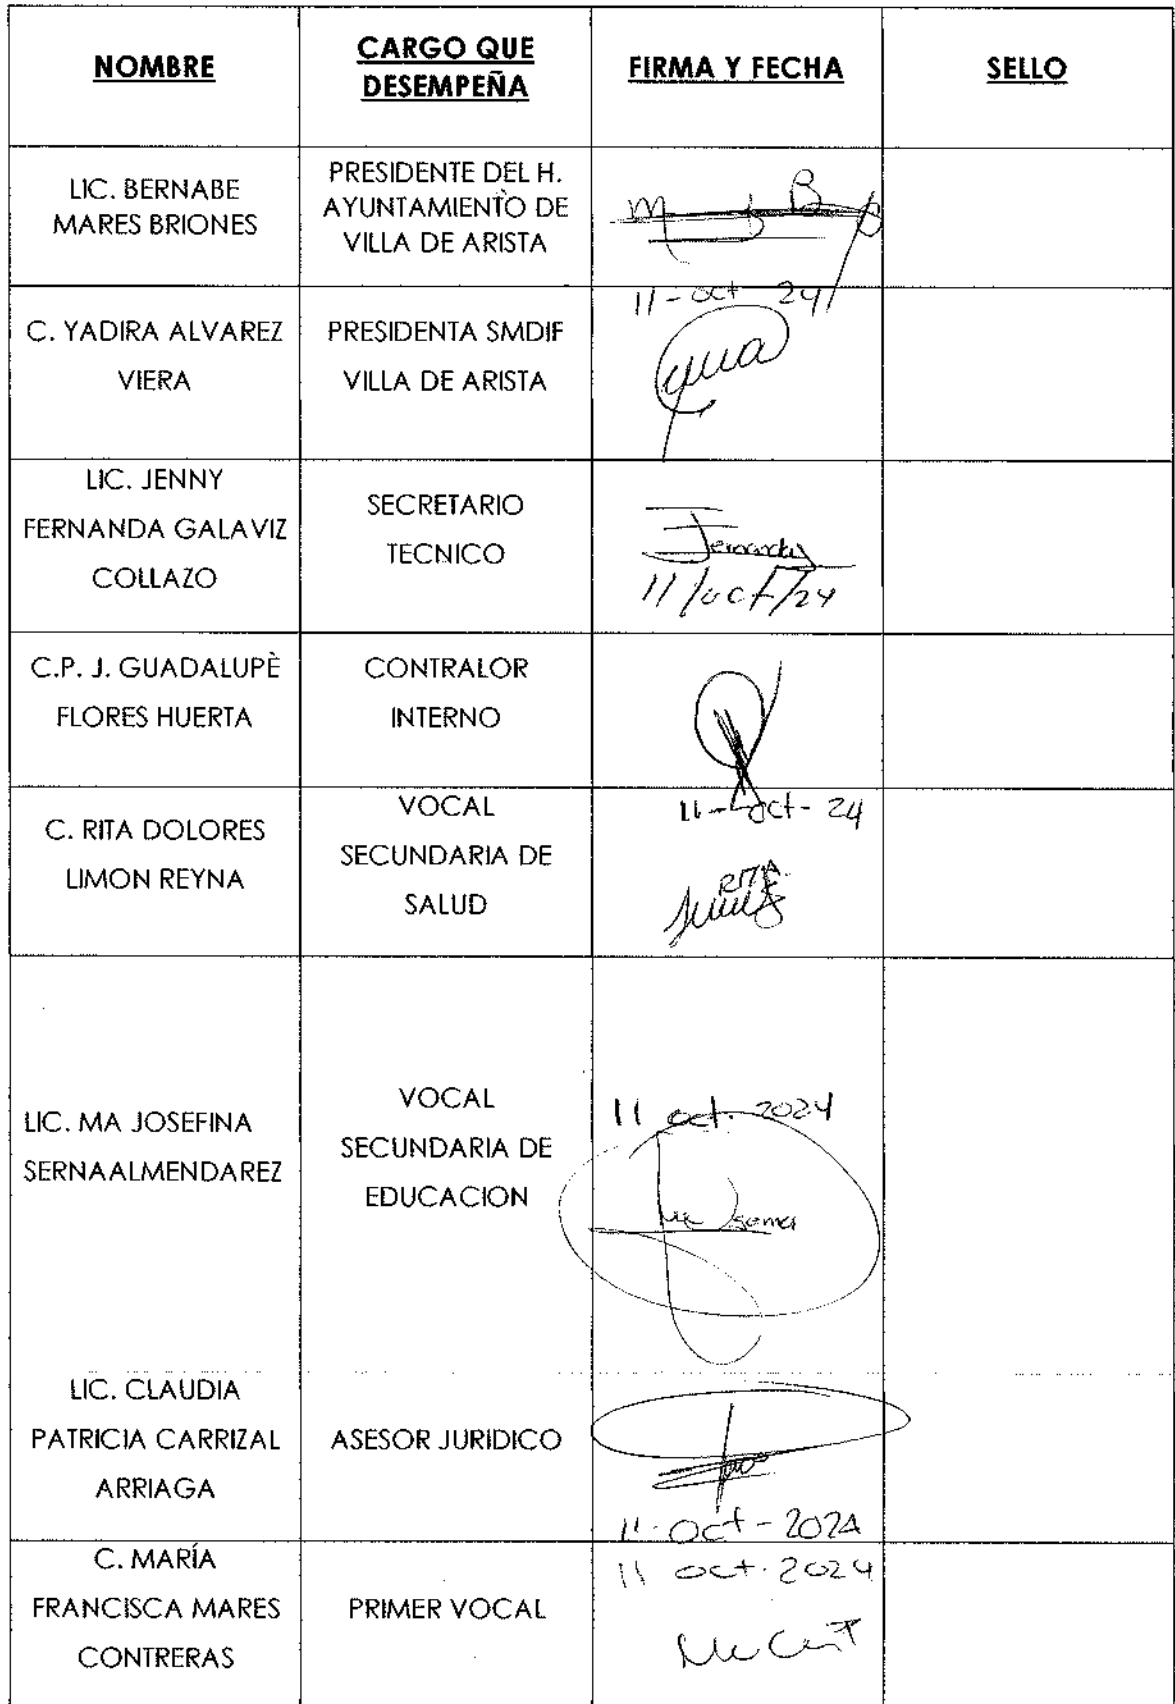 NOMBRE
CARGO QUE
DESEMPEÑA
FIRMA Y FECHA
SELLO
LIC. BERNABE
MARES BRIONES
PRESIDENTE DEL H.
AYUNTAMIENTO DE
VILLA DE ARISTA
m B
C. YADIRA ALVAREZ
VIERA
PRESIDENTA SMDIF
VILLA DE ARISTA
11-oct 24
LIC. JENNY
FERNANDA GALAVIZ
COLLAZO
SECRETARIO
TECNICO
Fernanda
11/oct/24
C.P. J. GUADALUPÈ
FLORES HUERTA
CONTRALOR
INTERNO
C. RITA DOLORES
LIMON REYNA
VOCAL
SECUNDARIA DE
SALUD
11-oct-24
RITA
LIC. MA JOSEFINA
SERNAALMENDAREZ
VOCAL
SECUNDARIA DE
EDUCACION
11 oct. 2024
LIC. CLAUDIA
PATRICIA CARRIZAL
ARRIAGA
ASESOR JURIDICO
11-Oct-2024
C. MARÍA
FRANCISCA MARES
CONTRERAS
PRIMER VOCAL
11 oct. 2024